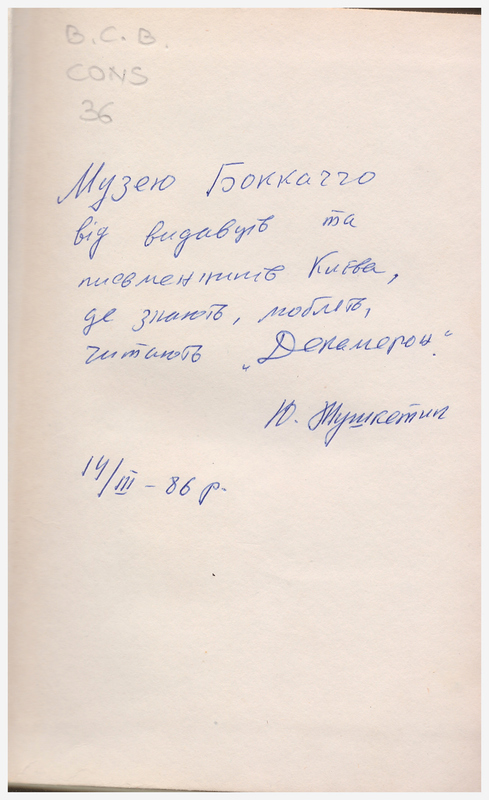 B.C.B.
CONS
36
Музею Боккаччо
від видавців та
письменників Києва,
де знають, люблять,
читають „Декамерон".
Ю. Мушкетик
14/III – 86 р.